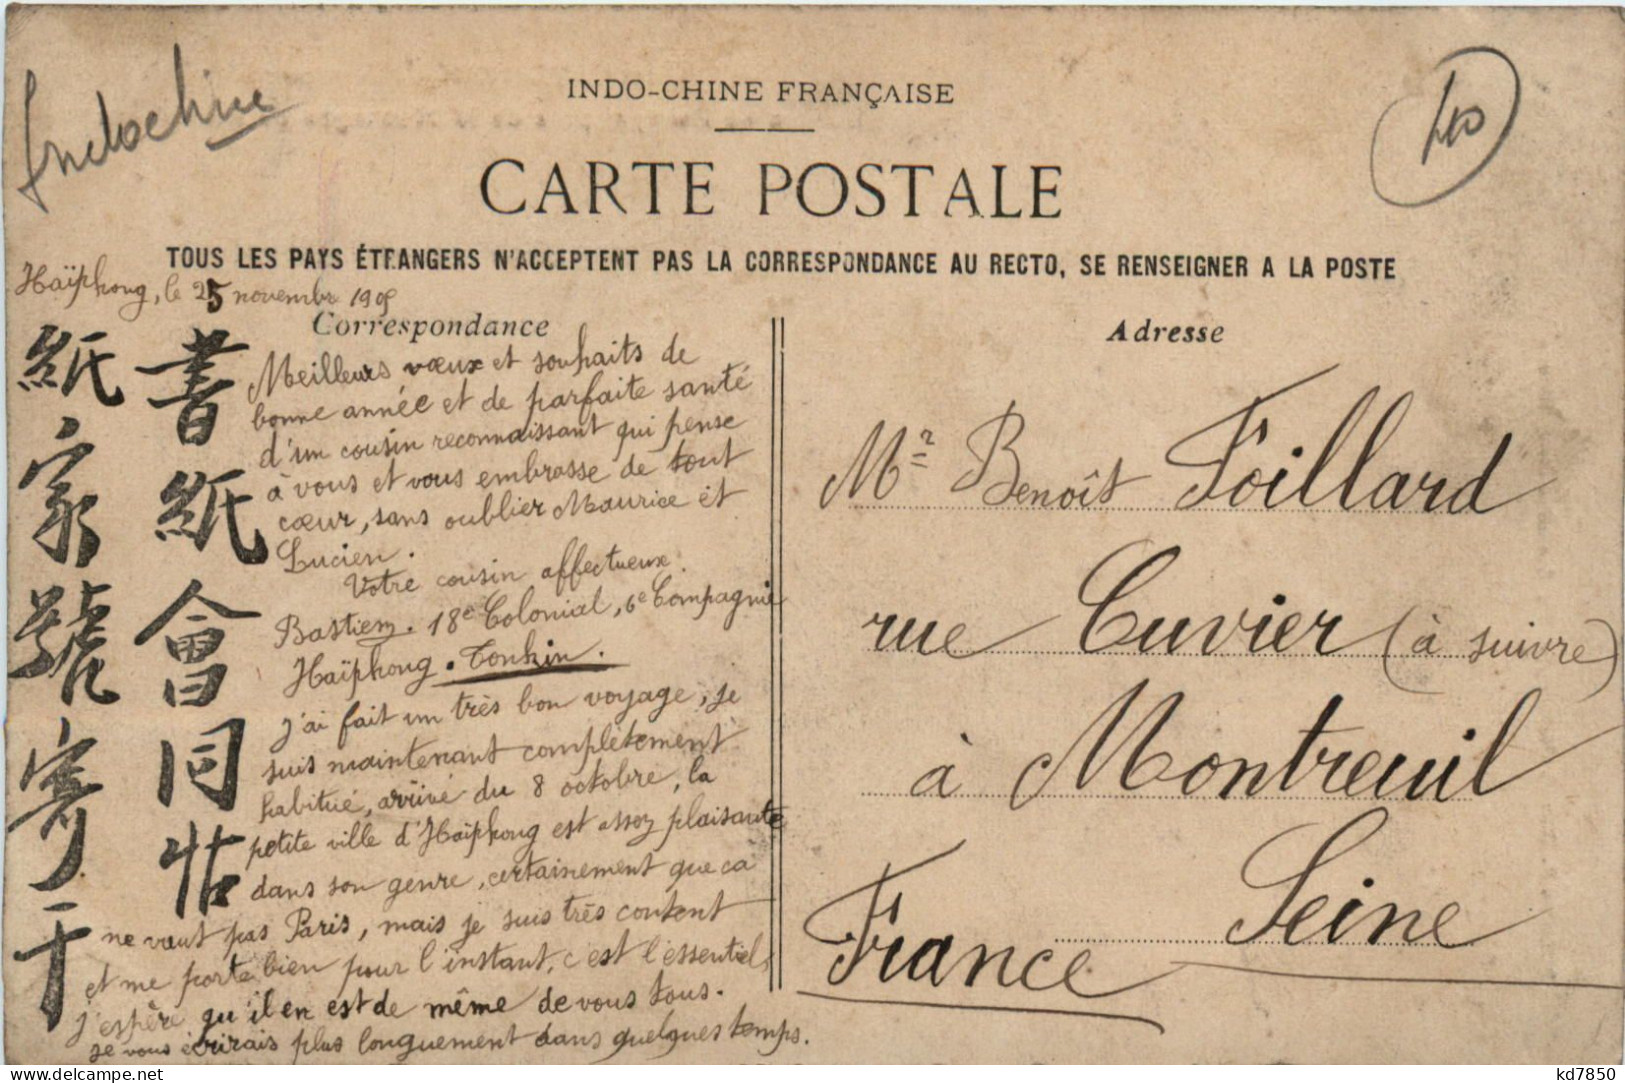 Indochine
40
INDO-CHINE FRANÇAISE
CARTE POSTALE
TOUS LES PAYS ÉTRANGERS N'ACCEPTENT PAS LA CORRESPONDANCE AU RECTO, SE RENSEIGNER A LA POSTE
Haïphong, le 25 novembre 190
Correspondance
Meilleurs vœux et souhaits de
bonne année et de parfaite santé
d'un cousin reconnaissant qui pense
à vous et vous embrasse de tout
cœur, sans oublier Maurice et
Lucien.
Votre cousin affectueux.
Bastien. 18e Colonial, 6e Compagnie
Haïphong. Tonkin.
J'ai fait un très bon voyage, je
suis maintenant complètement
habitué, arrivé du 8 octobre, la
petite ville d'Haïphong est assez plaisante
dans son genre, certainement que ca
ne vaut pas Paris, mais je suis très content
et me porte bien pour l'instant, c'est l'essentiel,
j'espère qu'il en est de même de vous tous.
Je vous écrirais plus longuement dans quelques temps.
書紙會同帖
紙家號寄于
Adresse
Mr Benoît Foillard
rue Cuvier (à suivre)
à Montreuil
Seine
France
kd7850